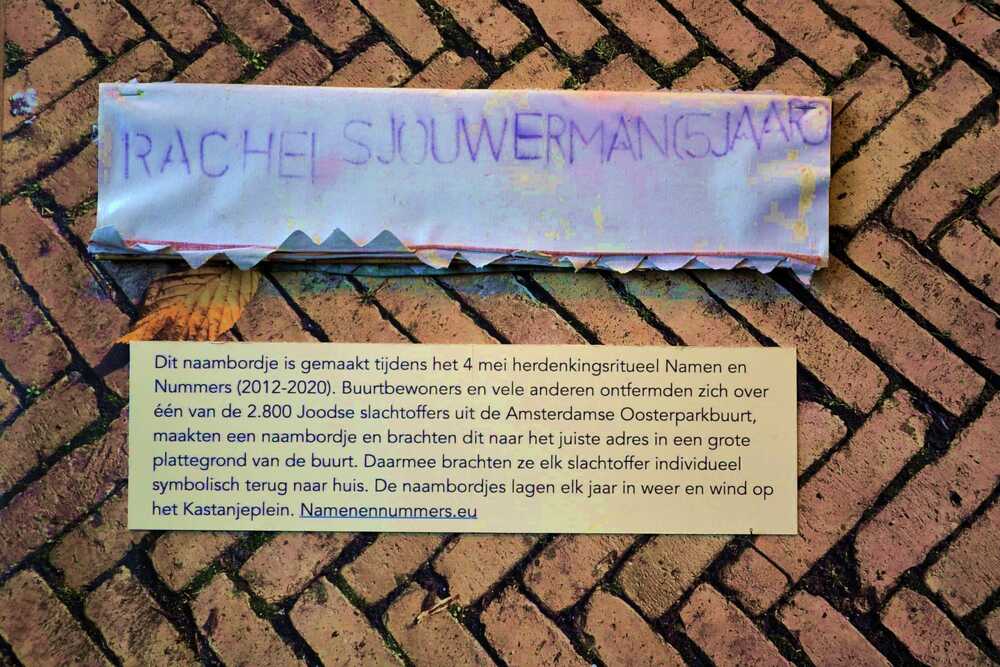 RACHEL SJOUWERMAN (5 JAAR)
Dit naambordje is gemaakt tijdens het 4 mei herdenkingsritueel Namen en
Nummers (2012-2020). Buurtbewoners en vele anderen ontfermden zich over
één van de 2.800 Joodse slachtoffers uit de Amsterdamse Oosterparkbuurt,
maakten een naambordje en brachten dit naar het juiste adres in een grote
plattegrond van de buurt. Daarmee brachten ze elk slachtoffer individueel
symbolisch terug naar huis. De naambordjes lagen elk jaar in weer en wind op
het Kastanjeplein. Namenennummers.eu